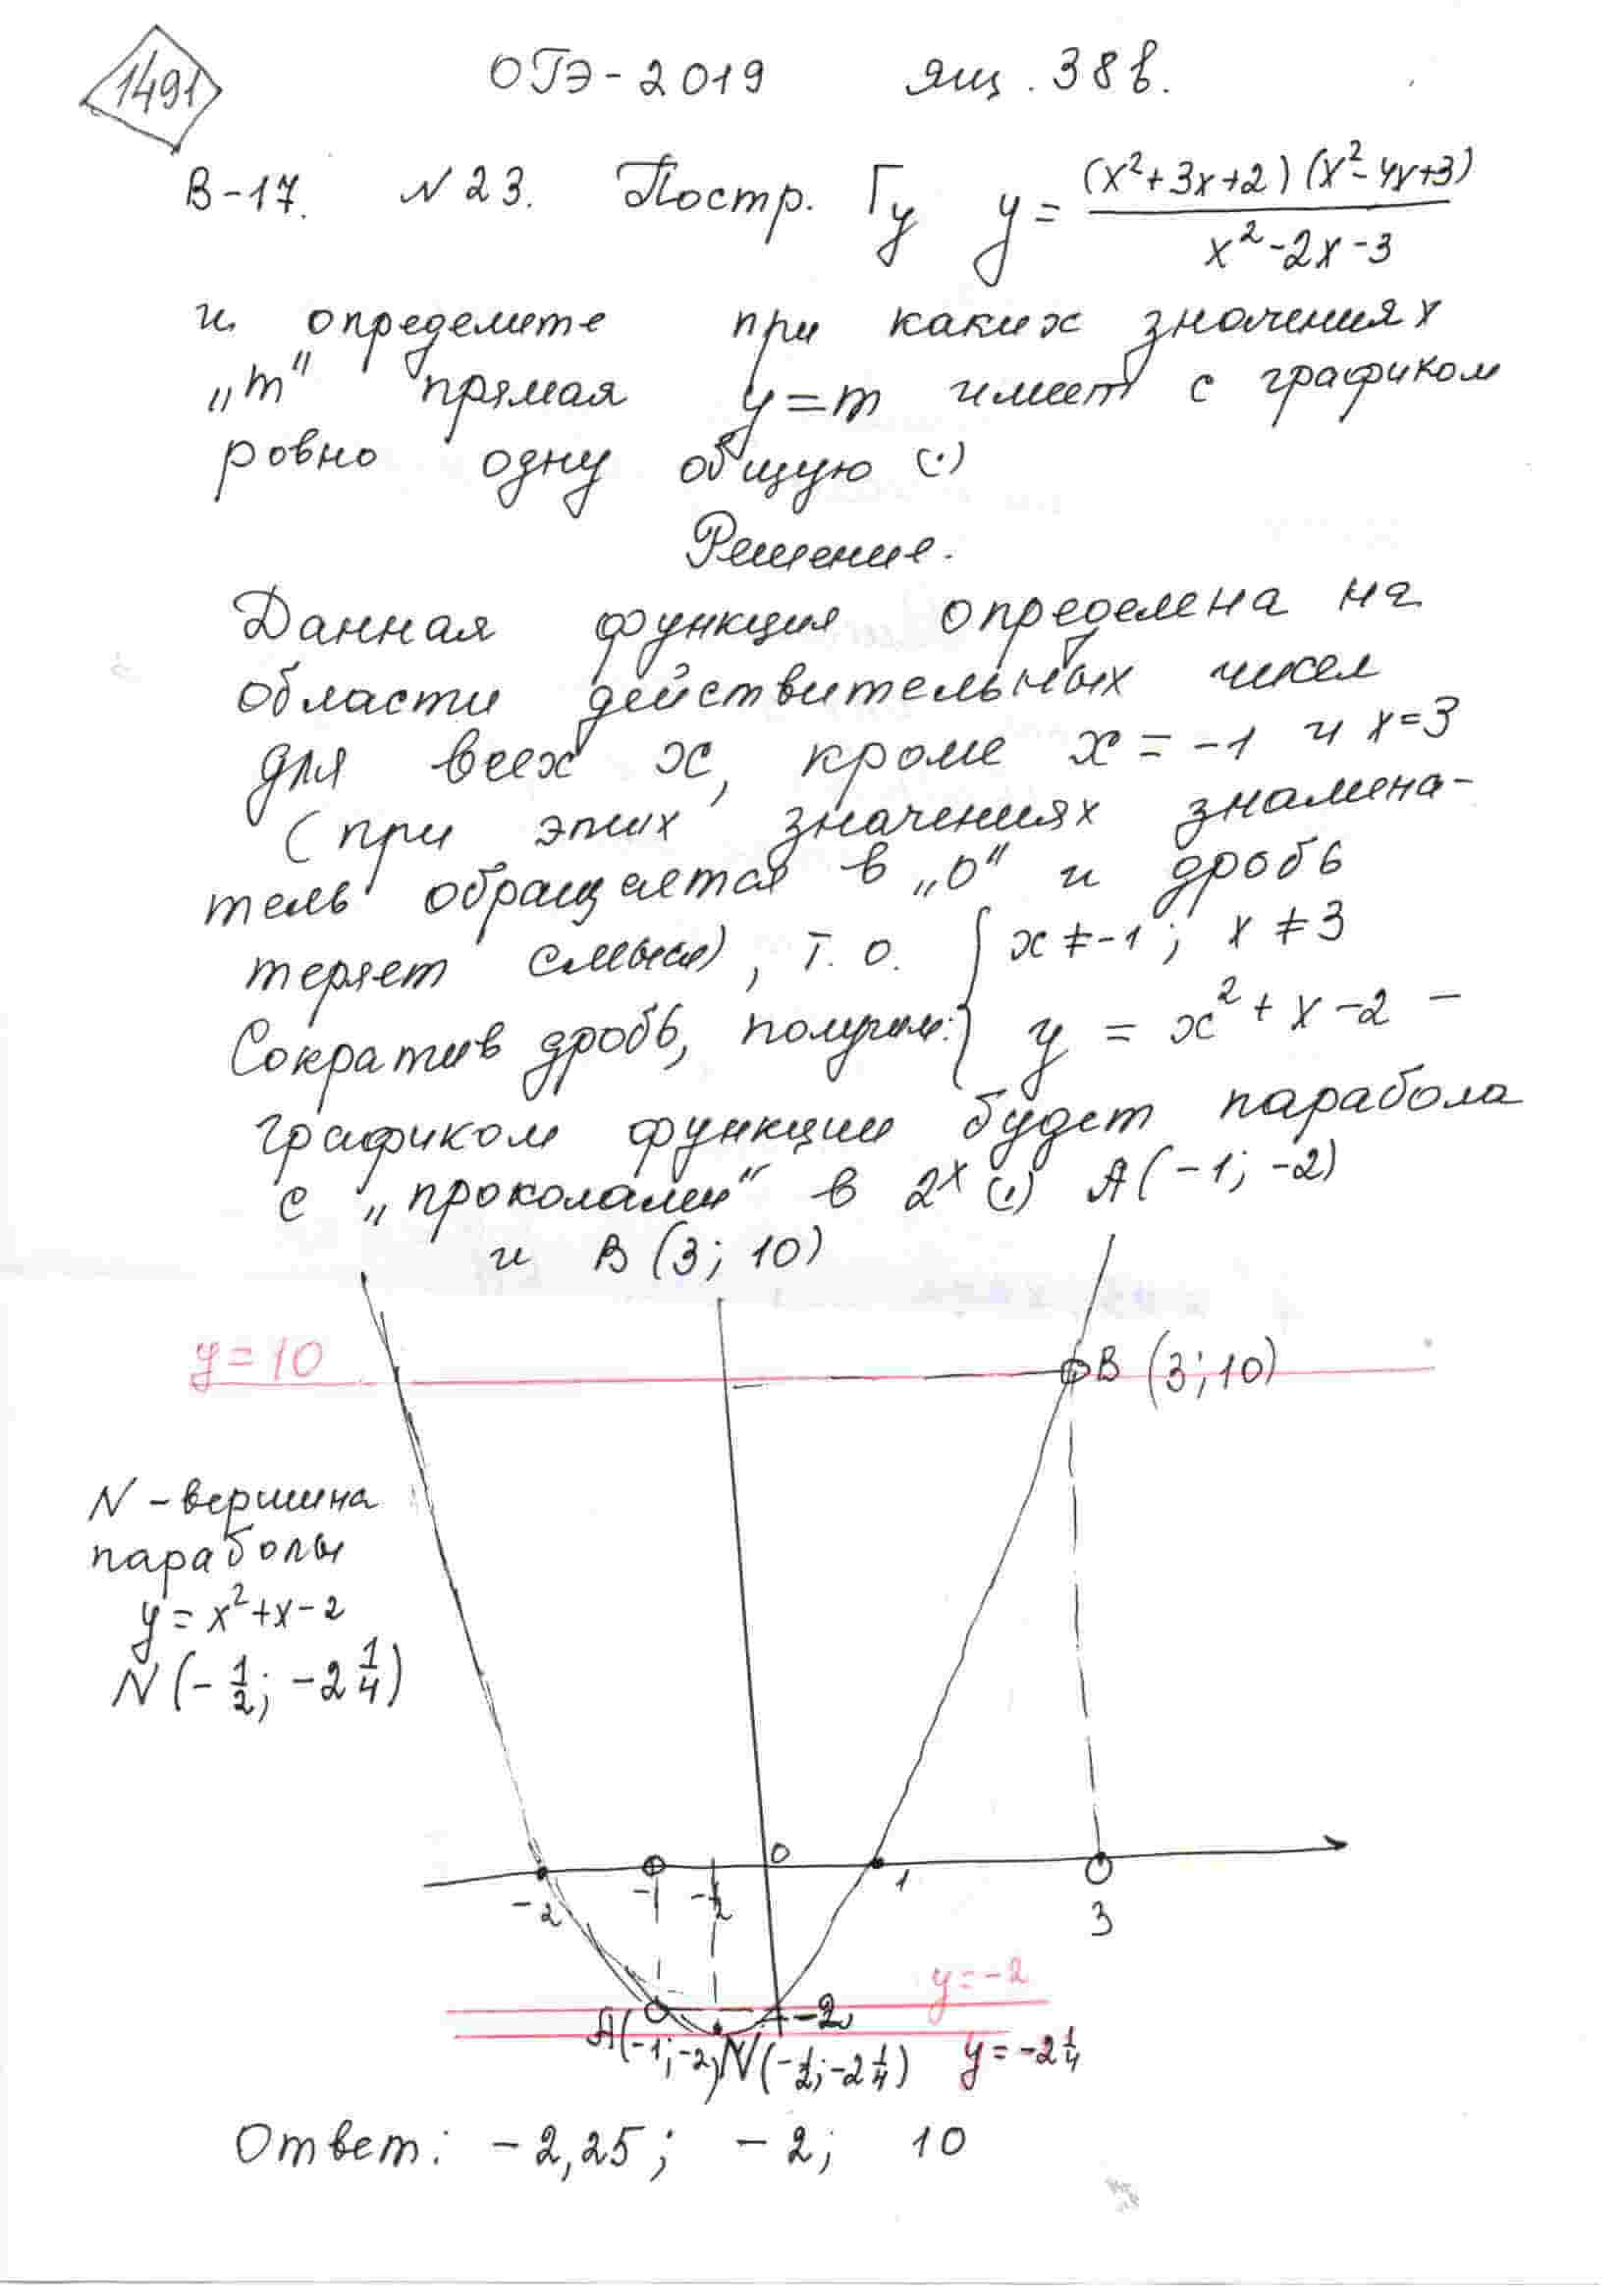 1491
ОГЭ-2019 ящ. 38в.
В-17. №23. Постр. Гу y = (x²+3x+2)(x²-4x+3) / x²-2x-3
и определите при каких значениях
„m" прямая y=m имеет с графиком
ровно одну общую (·)
Решение.
Данная функция определена на
области действительных чисел
для всех x, кроме x = -1 и x=3
(при этих значениях знамена-
тель обращается в „0" и дробь
теряет смысл), т.о. { x ≠ -1; x ≠ 3
Сократив дробь, получим: { y = x² + x - 2 -
графиком функции будет парабола
с „проколами" в 2х (·) A(-1; -2)
и B (3; 10)
y=10
B (3; 10)
N - вершина
параболы
y = x²+x-2
N (-1/2; -2 1/4)
0
-2
-1
-1/2
1
3
y=-2
-2
A(-1;-2)
N(-1/2;-2 1/4)
y=-2 1/4
Ответ: -2,25; -2; 10